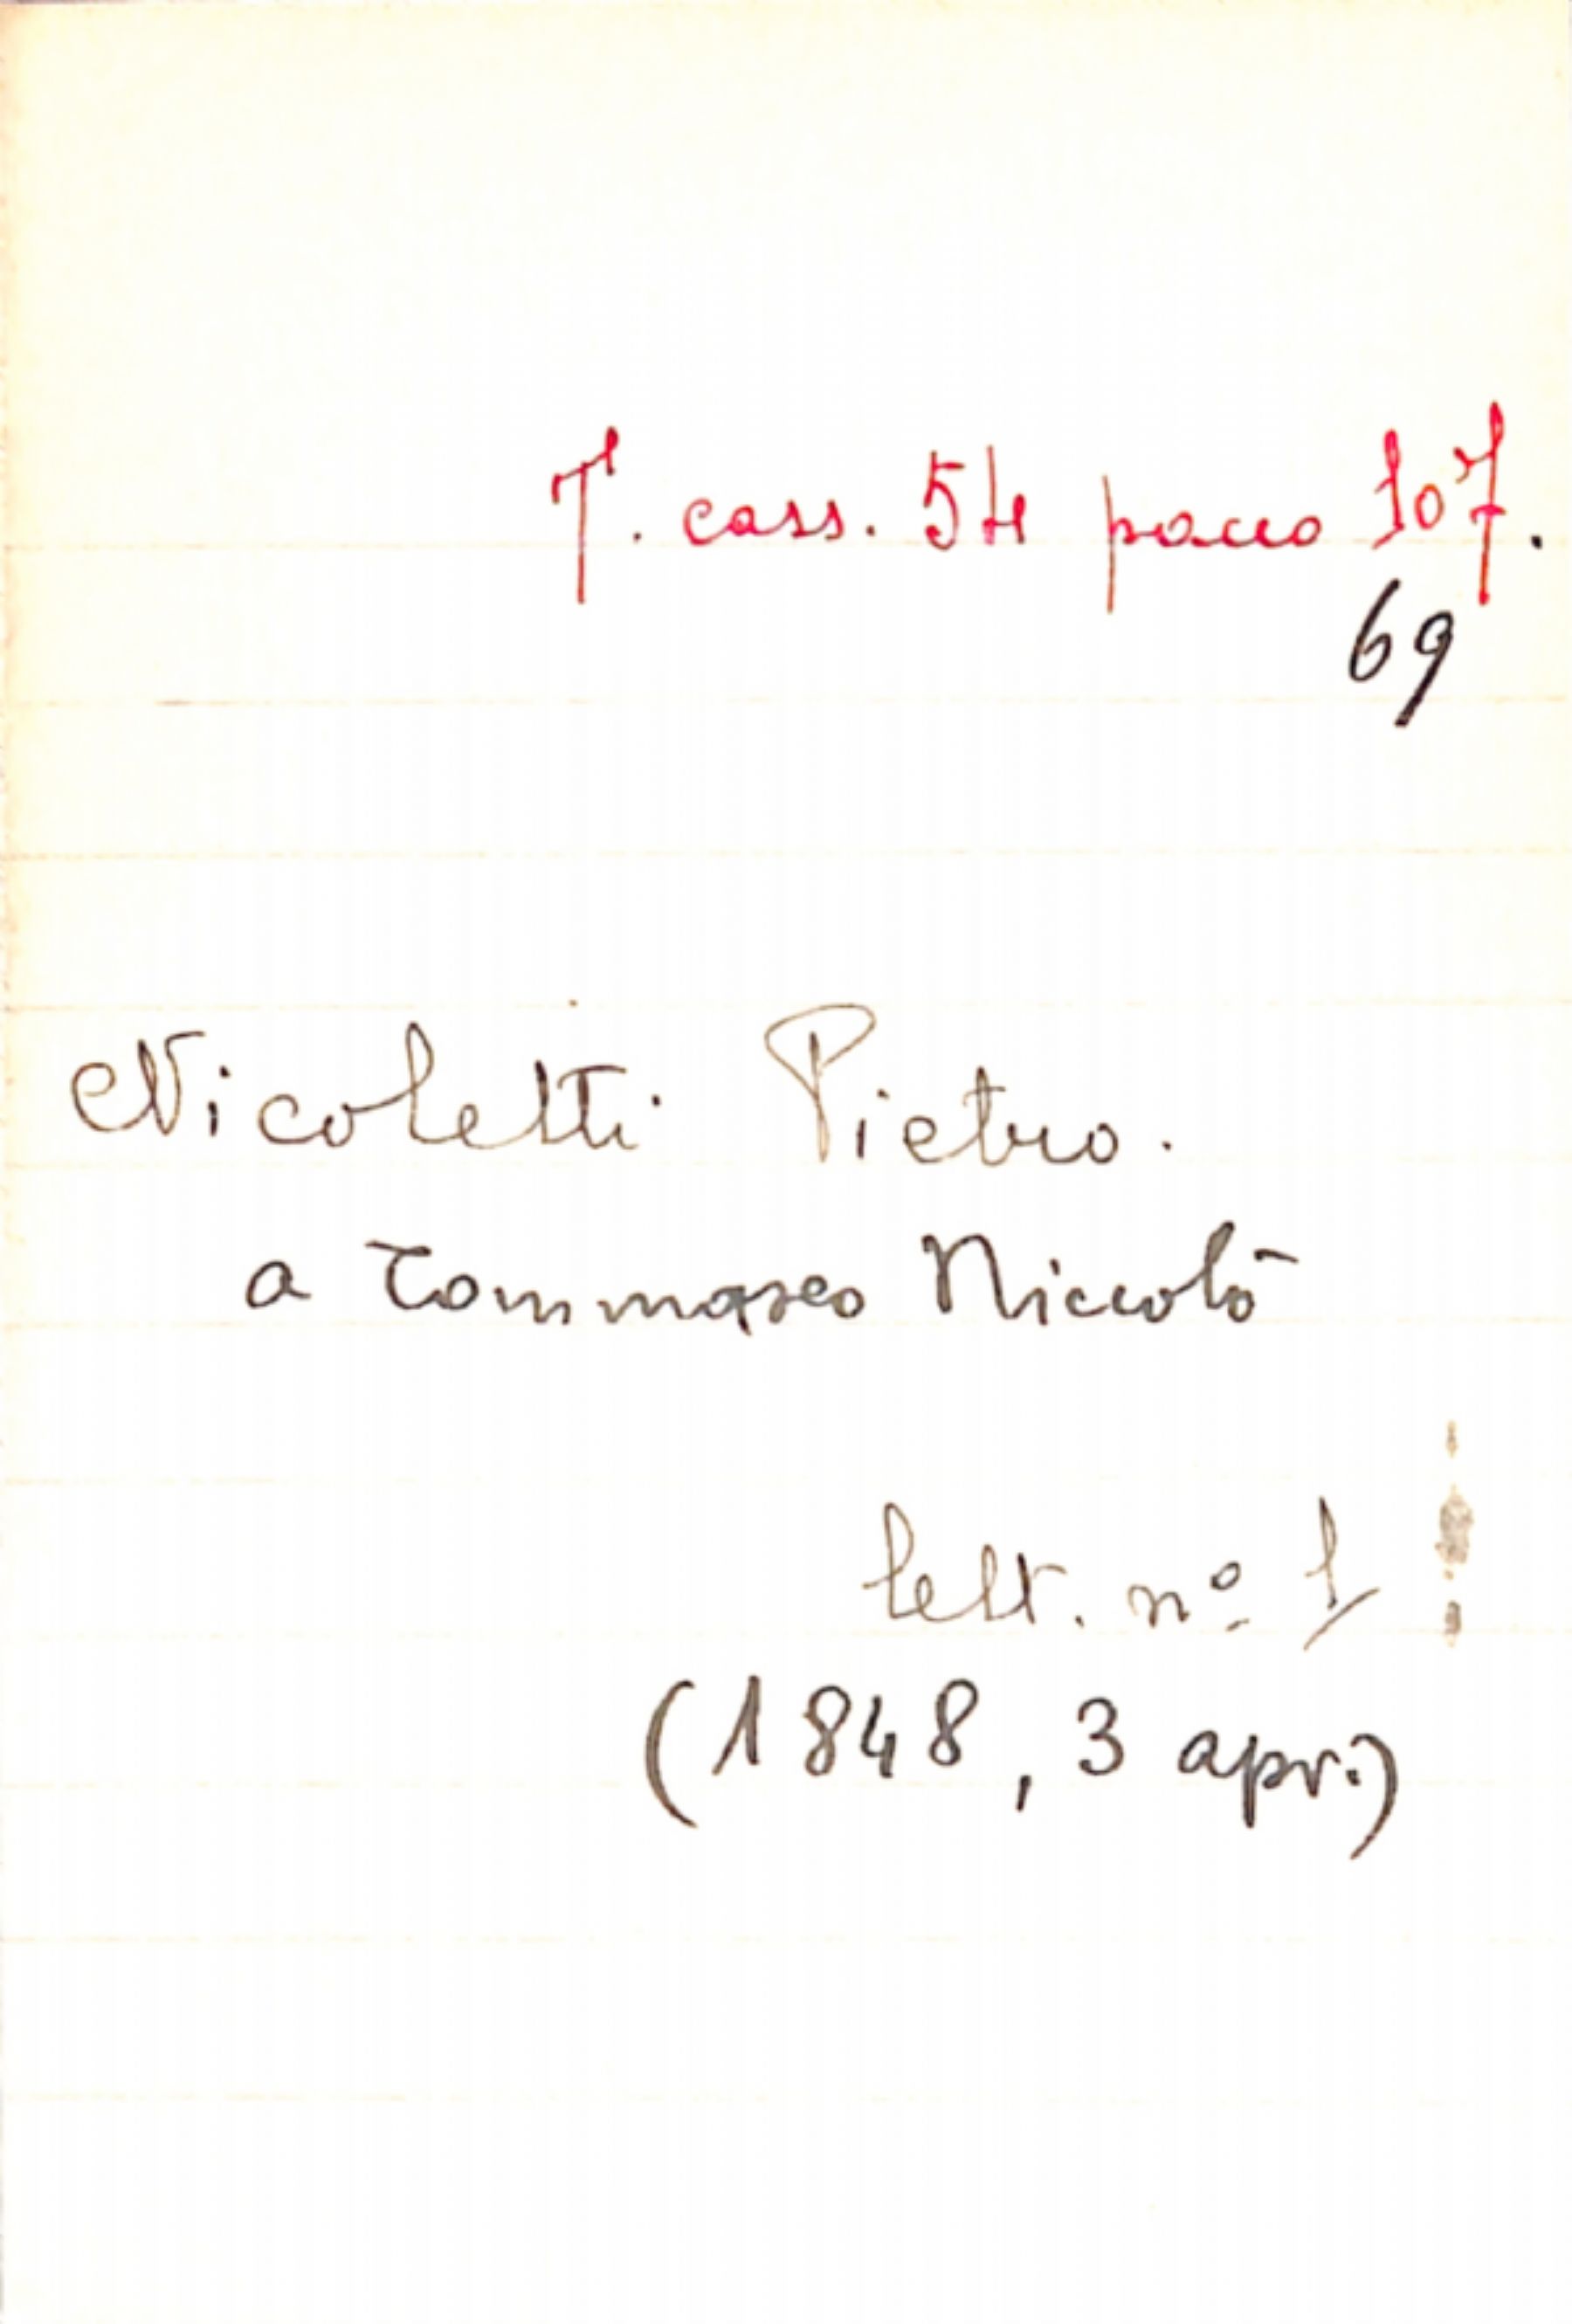 T. cass. 54 pacco 107.
69
Nicoletti Pietro.
a Tommaseo Niccolò
lett. nº 1
(1848, 3 apr.)